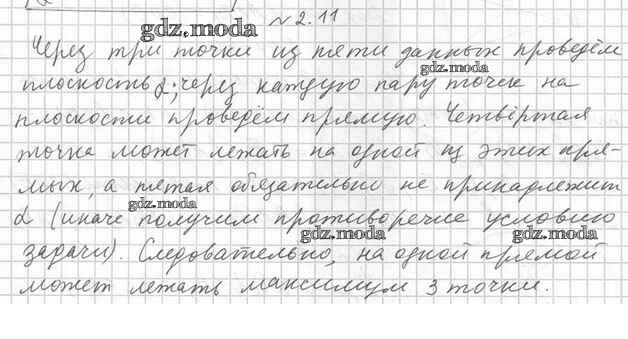 № 2.11
gdz.moda
Через три точки из пяти данных проведём
gdz.moda
плоскость α; через каждую пару точек на
плоскости проведём прямую. Четвёртая
точка может лежать на одной из этих пря-
мых, а пятая обязательно не принадлежит
gdz.moda
α (иначе получим противоречие условию
gdz.moda gdz.moda
задачи). Следовательно, на одной прямой
может лежать максимум 3 точки.